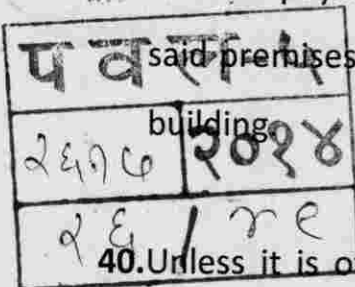 प व ल - ५ said premises
building.
२६१७ २०१४
२६ /
40.Unless it is